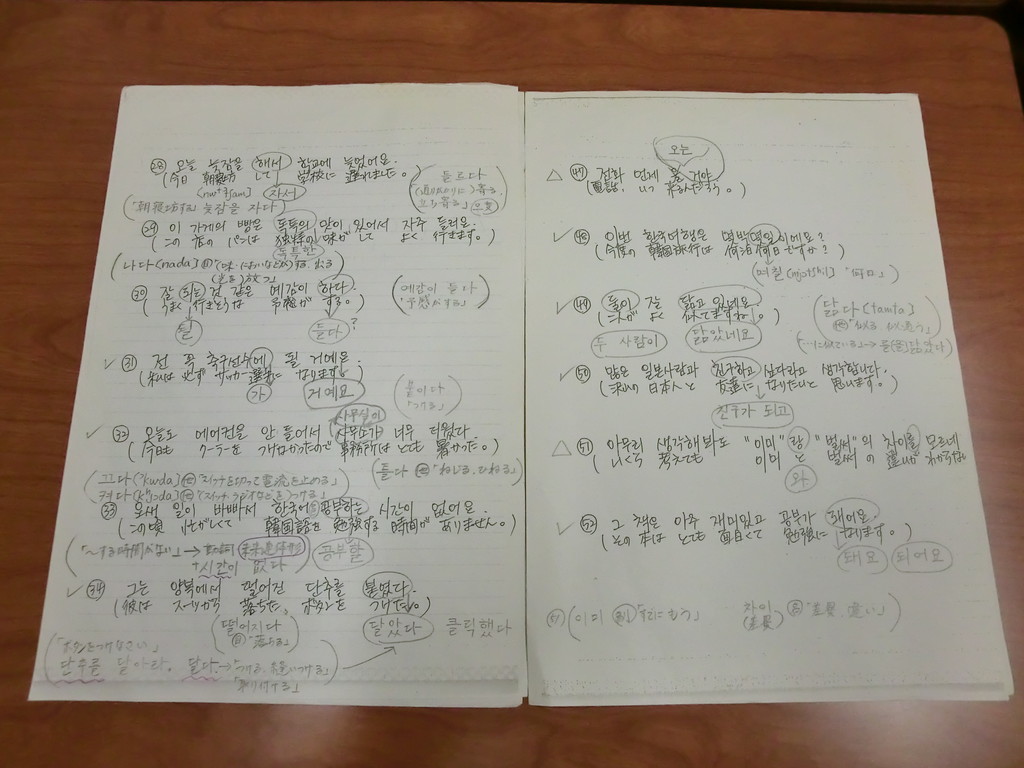 ㉘ 오늘 늦잠을 해서 학교에 늦었어요.
(今日 朝寝坊 して 学校に 遅れました。)
자서
「朝寝坊する」 늦잠을 자다
들르다
(通りがかりに)寄る、
立ち寄る」
㉙ 이 가게의 빵은 독특의 맛이 있어서 자주 들러요.
この 店の パンは 独特の 味が して よく 行きます。)
독특한
나다<nada>
㉚ 잘 되는 것 같은 예감이 하다.
(うまく 行きそうな 予感が する。)
될
들다 ?
예감이 들다
「予感がする」
✓ ㉛ 전 꼭 축구선수에 될 거예요.
(私は 必ず サッカー選手に なります。)
가
거예요
붙이다
「つける」
사무실이
✓ ㉜ 오늘도 에어컨을 안 틀어서 사무소가 너무 더웠다.
(今日も クーラーを つけなかったので 事務所は とても 暑かった。)
틀다 他 「ねじる、ひねる」
끄다<ʼkwda> 他 「スイッチを切って電流を止める」
켜다
㉝ 요새 일이 바빠서 한국어를 공부하는 시간이 없어요.
(この頃 仕事が忙しくて 韓国語を 勉強する 時間が ありません。)
「~する時間がない」→ 動詞 未来連体形
+시간이 없다
공부할
✓ ㉞ 그는 양복에서 떨어진 단추를 붙였다.
(彼は スーツから 落ちた ボタンを つけた。)
떨어지다
自「落ちる」
달았다 클릭했다
「ボタンをつけなさい」
단추를 달아라. 달다→「つける、縫いつける」
「取り付ける」
오는
△ ㊼ 전화 언제 올 거야
(電話、いつ 来るんだろう。)
✓ ㊽ 이번 한국여행은 몇박 몇일이에요?
(今度の 韓国旅行は 何泊 何日ですか?)
며칠 「何日」
✓ ㊾ 둘이 잘 닮고 있네요.
(二人が よく 似てますね。)
두 사람이
닮았네요
닮다 <tamta>
他 「似る、似通う」
✓ ㊿ 많은 일본사람과 친구하고 싶다라고 생각합니다.
(沢山の 日本人と 友達に なりたいと 思います。)
친구가 되고
△ 51 아무리 생각해봐도 "이미"랑 "벌써"의 차이를 모르네
(いくら 考えても 이미 と 벌써 の 違いが わからない
와
✓ 52 그 책은 아주 재미있고 공부가 돼어요.
(その 本は とても 面白くて 勉強に なります。)
돼요 되어요
(이미 副「すでに、もう」 차이 名「差異、違い」)
(差異